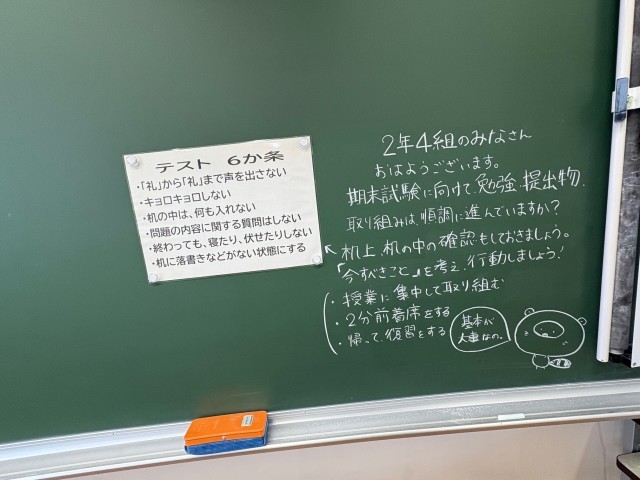 テスト 6か条
・「礼」から「礼」まで声を出さない
・キョロキョロしない
・机の中は、何も入れない
・問題の内容に関する質問はしない
・終わっても、寝たり、伏せたりしない
・机に落書きなどがない状態にする
2年4組のみなさん
おはようございます。
期末試験に向けて勉強、提出物、
取り組みは、順調に進んでいますか?
机上、机の中の確認もしておきましょう。
「今すべきこと」を考え、行動しましょう!
・授業に集中して取り組む
・2分前着席をする
・帰って、復習をする
基本が
大事なの。